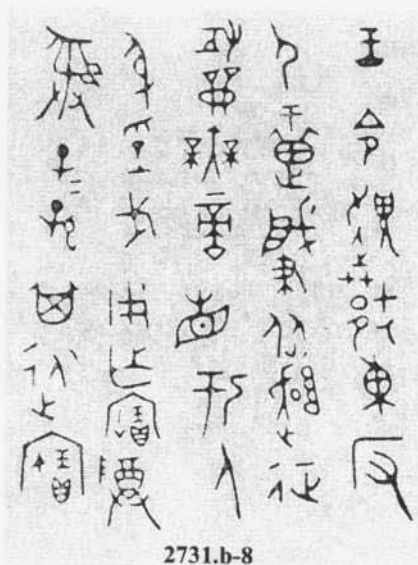 王令趞𢦏東反
尸疐肇從趞征
攻龠無啻省于人
身孚戈用乍寶𬯚
彝子=孫其永寶
2731.b-8